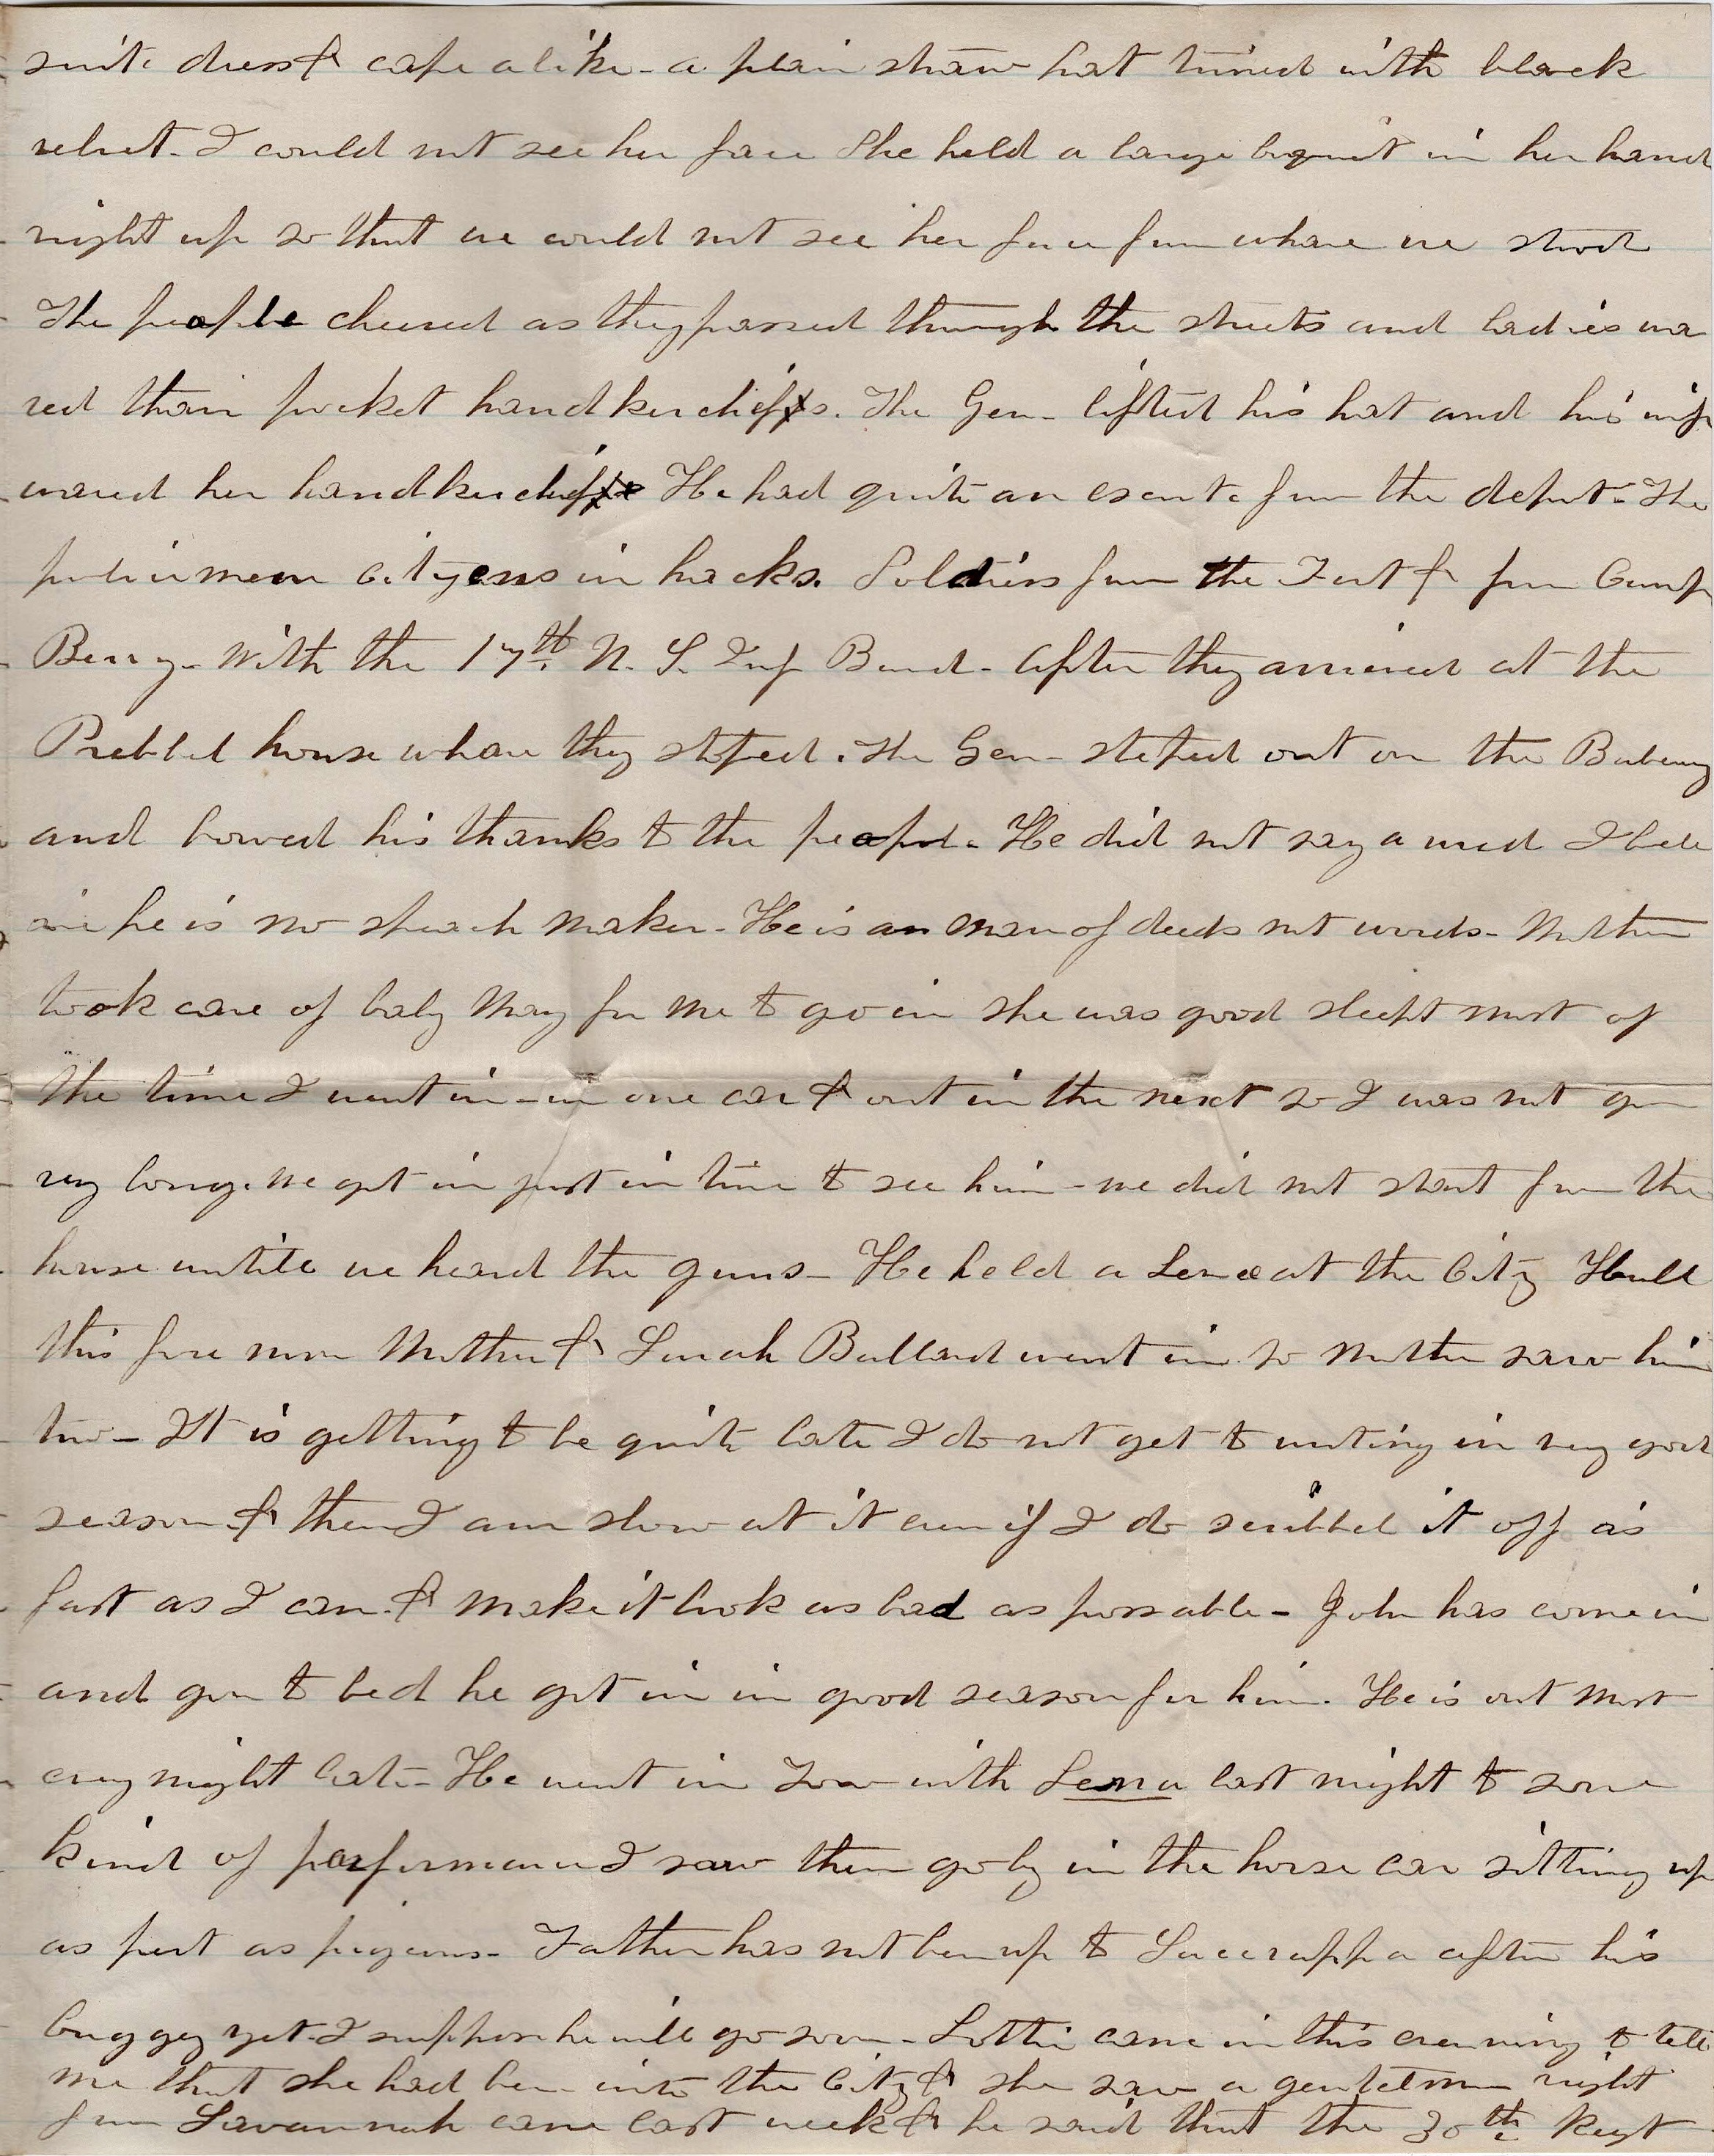 suite dress & cape alike - a plain straw hat trimed with black
velvet - I could not see her face She held a large boquet in her hand
right up so that we could not see her face from whare we stood
The people cheered as they passed through the streets and ladies wa
ved thair pocket handkerchiefs. The Gen - lifted his hat and his wife
waved her handkerchief He had quite an escorte from the depot - The
policemen cityzens in hacks. Soldiers from the Fort & from Camp
Berry - With the 17th U. S. Inf Band - After they arrived at the
Prebbel house whare they stoped. The Gen - steped out on the Balcony
and bowed his thanks to the people - He did not say a word I bele
ive he is no speach maker - He is an man of deeds not words - Mother
took care of baby May for me to go in she was good slept most of
the time I went in - in one car & out in the next so I was not gon
very long. we got in just in time to see him - we did not start from the
house untill we heard the guns - He held a Levee at the City Hall
this fore noon Mother & Sarah Ballard went in so Mother saw him
two - It is getting to be quite late I do not get to writing in very good
season & then I am slow at it even if I do scribbel it off as
fast as I can & make it look as bad as possable - John has come in
and gon to bed he got in in good season for him. He is out most
every night late - He went in Town with Lena last night to some
kind of performance I saw them go by in the horse car sitting up
as pert as pigeons - Father has not ben up to Saccarappa after his
buggey yet - I suppose he will go soon - Lottie came in this evenning to tell
me that she had ben into the City & she saw a gentelman right
from Savannah came last week & he said that the 30th Regt